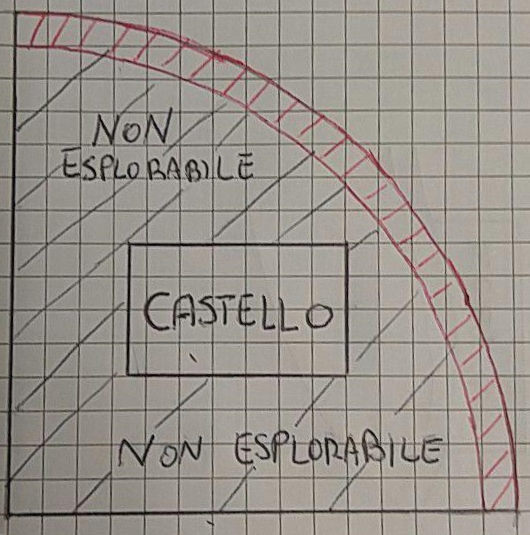 NON
ESPLORABILE
CASTELLO
NON ESPLORABILE